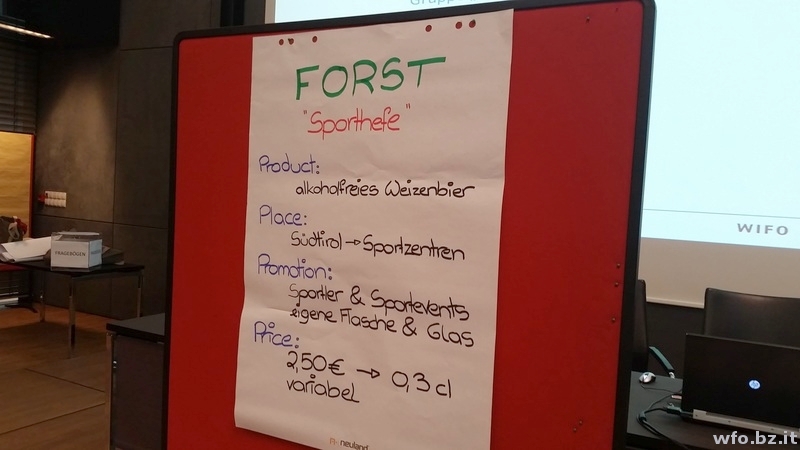 Grupp
FORST
"Sporthefe"
Product:
alkoholfreies Weizenbier
Place:
Südtirol → Sportzentren
Promotion:
Sportler & Sportevents
eigene Flasche & Glas
Price:
2,50€ → 0,3 cl
variabel
neuland
FRAGEBÖGEN
WIFO
hp
wfo.bz.it